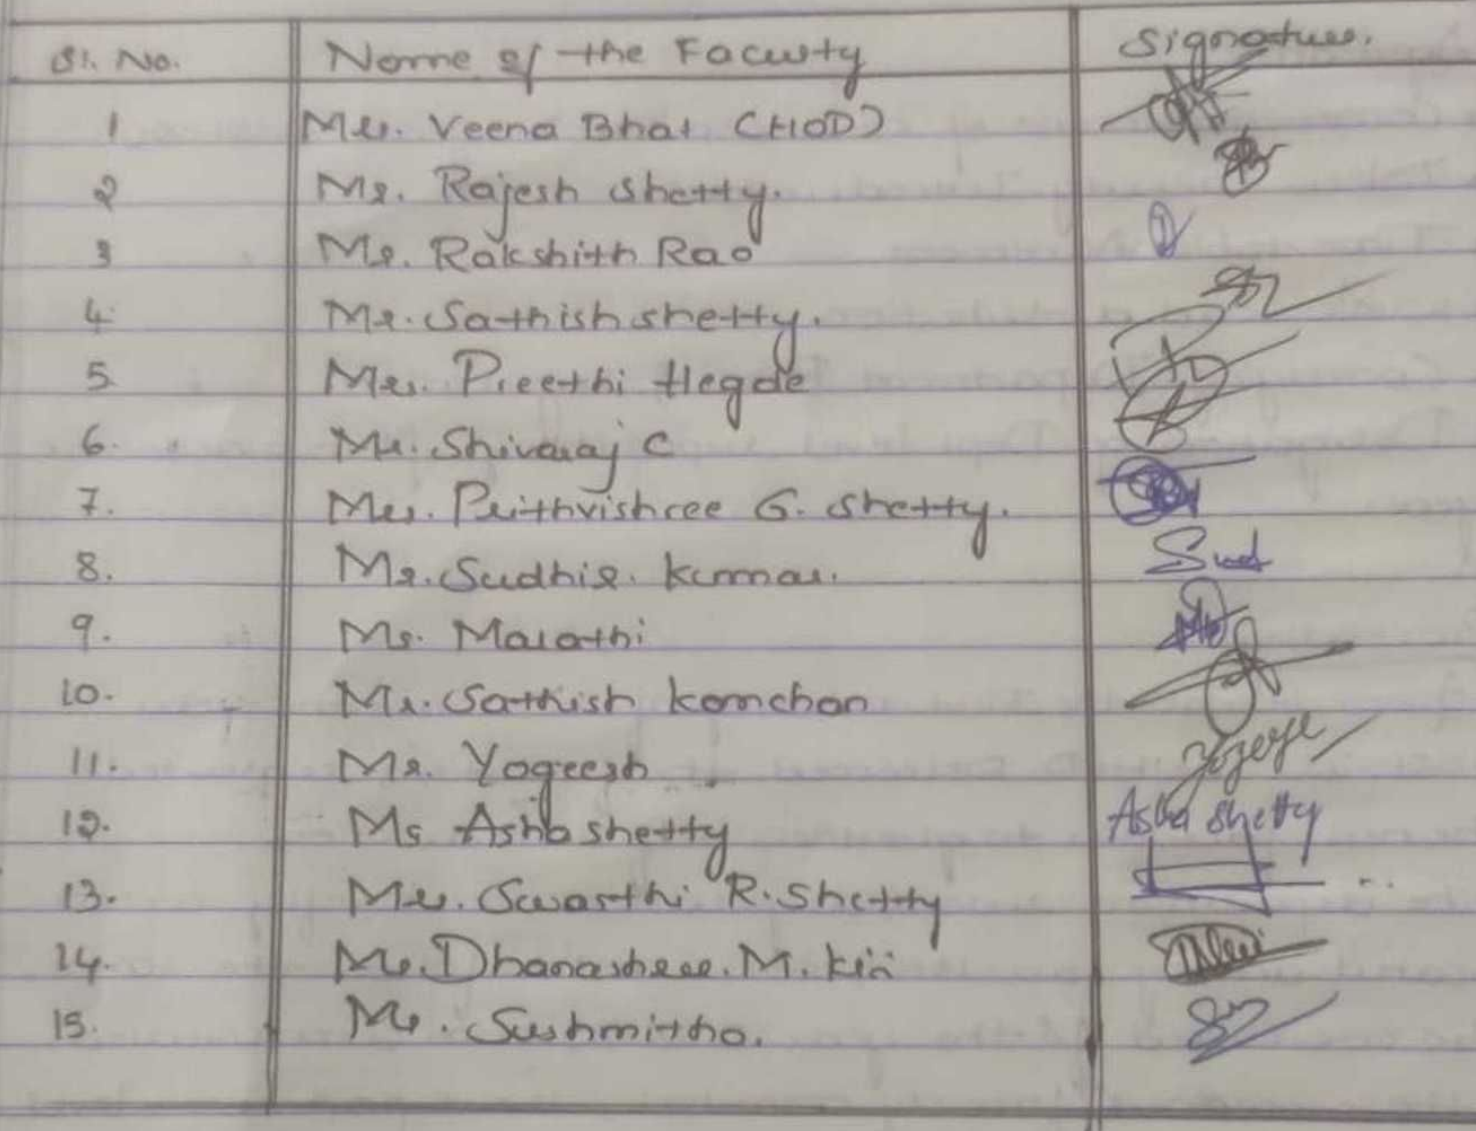 Sl. No. Name of the Faculty Signature.
1 Mrs. Veena Bhat (HOD)
2 Mr. Rajesh Shetty.
3 Mr. Rakshith Rao
4. Mr. Sathish shetty.
5 Mrs. Preethi Hegde
6. Mr. Shivaraj C
7. Mrs. Prithvishree G. Shetty.
8. Mr. Sudhir. Kumar. Sud
9. Ms. Malathi
10. Mr. Sathish Kanchan
11. Mr. Yogeesh
12. Ms Asha shetty Asha Shetty
13. Mrs. Swasthi R. Shetty
14. Ms. Dhanashree. M. Kini
15. Ms. Sushmitha.